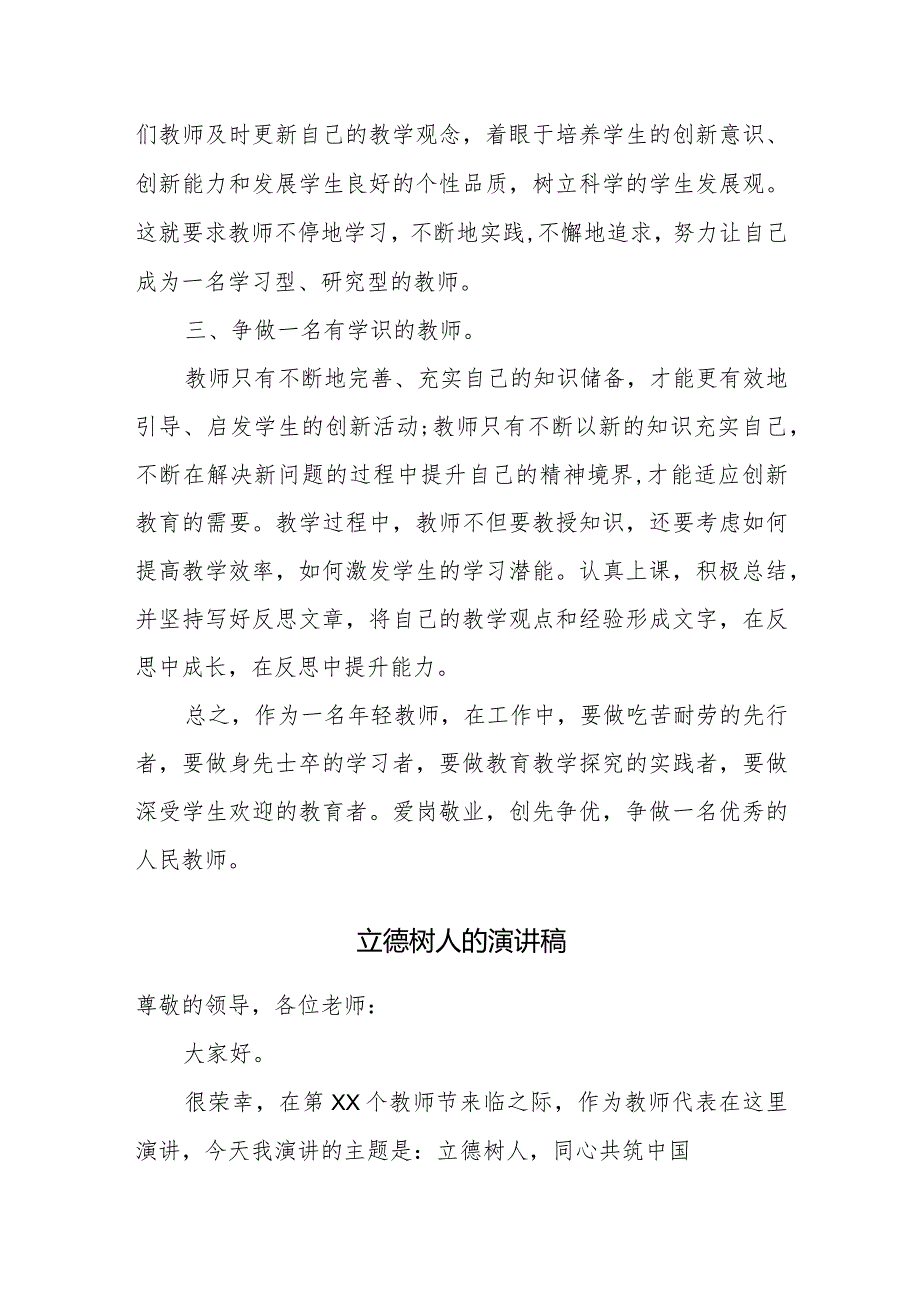 们教师及时更新自己的教学观念，着眼于培养学生的创新意识、
创新能力和发展学生良好的个性品质，树立科学的学生发展观。
这就要求教师不停地学习，不断地实践,不懈地追求，努力让自己
成为一名学习型、研究型的教师。
三、争做一名有学识的教师。
教师只有不断地完善、充实自己的知识储备，才能更有效地
引导、启发学生的创新活动;教师只有不断以新的知识充实自己，
不断在解决新问题的过程中提升自己的精神境界,才能适应创新
教育的需要。教学过程中，教师不但要教授知识，还要考虑如何
提高教学效率，如何激发学生的学习潜能。认真上课，积极总结，
并坚持写好反思文章，将自己的教学观点和经验形成文字，在反
思中成长，在反思中提升能力。
总之，作为一名年轻教师，在工作中，要做吃苦耐劳的先行
者，要做身先士卒的学习者，要做教育教学探究的实践者，要做
深受学生欢迎的教育者。爱岗敬业，创先争优，争做一名优秀的
人民教师。
立德树人的演讲稿
尊敬的领导，各位老师：
大家好。
很荣幸，在第XX个教师节来临之际，作为教师代表在这里
演讲，今天我演讲的主题是：立德树人，同心共筑中国